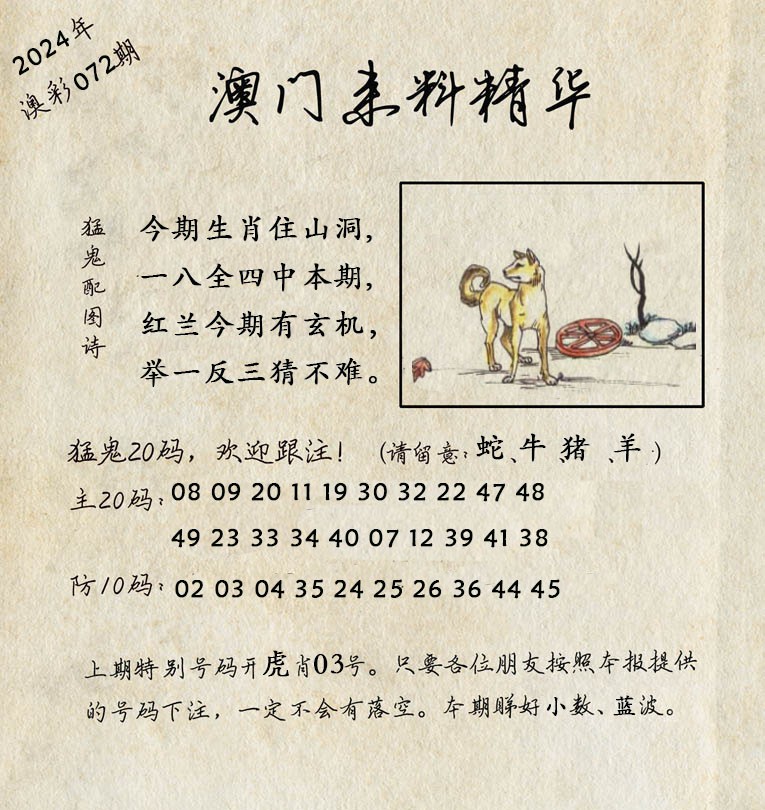 2024年
澳彩072期
澳门来料精华
猛鬼配图诗
今期生肖住山洞，
一八全四中本期，
红兰今期有玄机，
举一反三猜不难。
猛鬼20码，欢迎跟注！（请留意：蛇、牛 猪、羊）
主20码：08 09 20 11 19 30 32 22 47 48
49 23 33 34 40 07 12 39 41 38
防10码：02 03 04 35 24 25 26 36 44 45
上期特别号码开虎肖03号。只要各位朋友按照本报提供
的号码下注，一定不会有落空。本期睇好小数、蓝波。